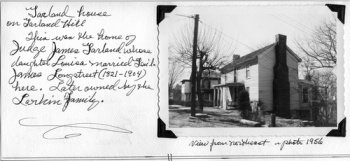 Garland house
on Garland Hill
This was the home of
Judge James Garland whose
daughter Louise married
James Longstreet (1821-1904)
here. Later owned by the
Larkin family.
View from northeast - photo 1956